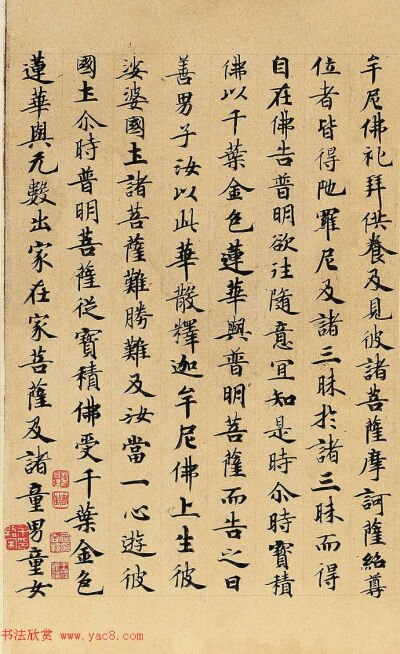 牟尼佛礼拜供養及見彼諸菩薩摩訶薩紹尊
位者皆得陁羅尼及諸三昧於諸三昧而得
自在佛告普明欲往隨意宜知是時尒時寳積
佛以千葉金色蓮華與普明菩薩而告之曰
善男子汝以此華散釋迦牟尼佛上生彼
娑婆國土諸菩薩難勝難及汝當一心遊彼
國土尒時普明菩薩從寳積佛受千葉金色
蓮華與无數出家在家菩薩及諸童男童女
书法欣赏 www.yac8.com